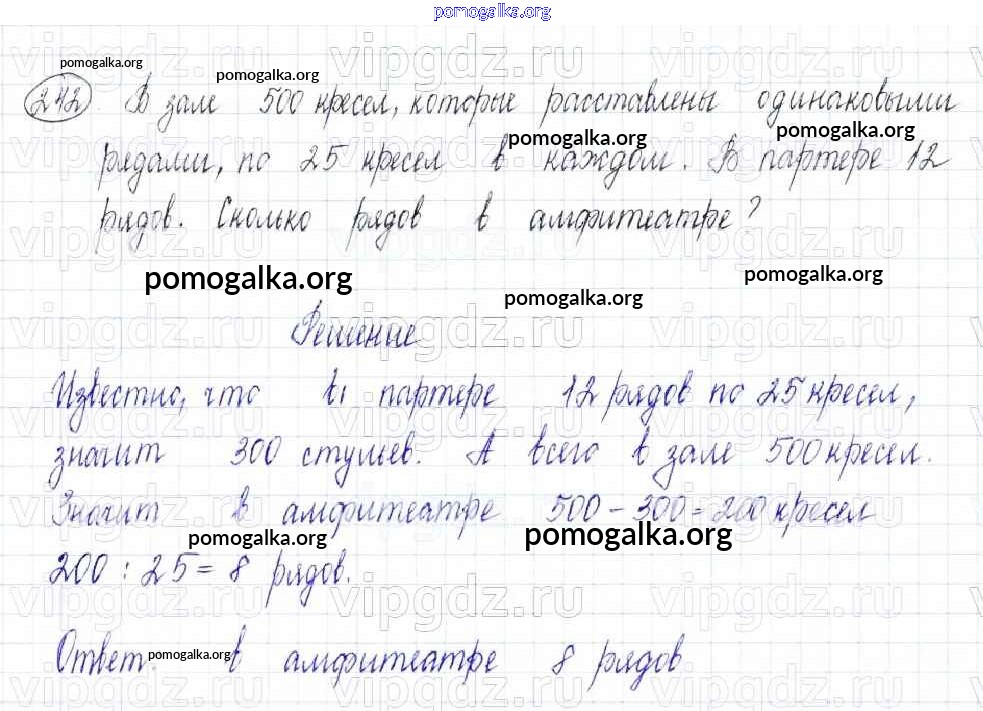 pomogalka.org
pomogalka.org
pomogalka.org
242. В зале 500 кресел, которые расставлены одинаковыми
pomogalka.org pomogalka.org
рядами, по 25 кресел в каждом. В партере 12
рядов. Сколько рядов в амфитеатре?
pomogalka.org pomogalka.org pomogalka.org
vipgdz.ru vipgdz.ru vipgdz.ru
Решение
Известно, что в партере 12 рядов по 25 кресел,
значит 300 стульев. А всего в зале 500 кресел.
Значит в амфитеатре 500 - 300 = 200 кресел
pomogalka.org pomogalka.org
200 : 25 = 8 рядов.
vipgdz.ru vipgdz.ru vipgdz.ru
Ответ: в амфитеатре 8 рядов
pomogalka.org